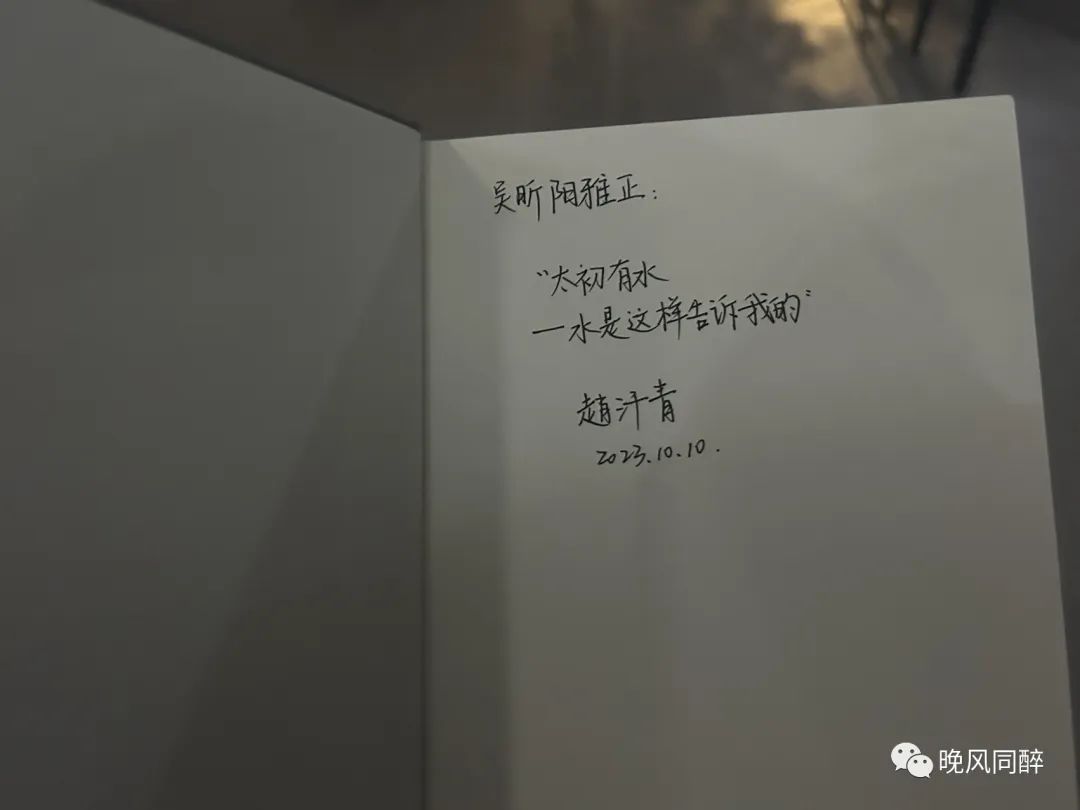 吴昕阳雅正：
“太初有水
—水是这样告诉我的”
趙汗青
2023.10.10.
晚风同醉